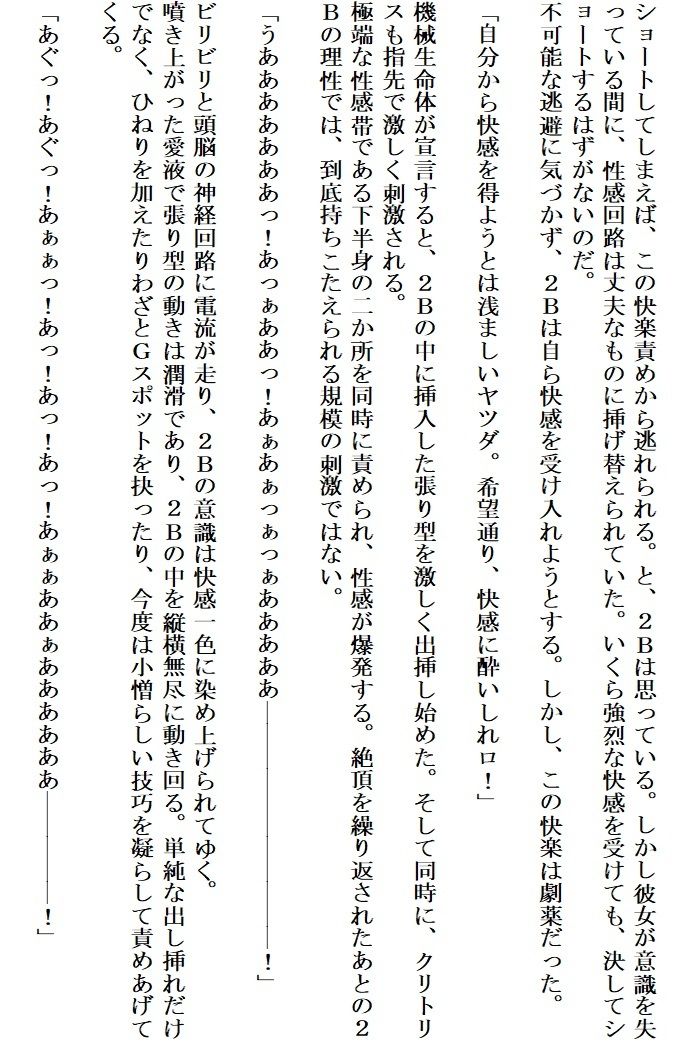 ショートしてしまえば、この快楽責めから逃れられる。と、２Ｂは思っている。しかし彼女が意識を失
っている間に、性感回路は丈夫なものに挿げ替えられていた。いくら強烈な快感を受けても、決してシ
ョートするはずがないのだ。
不可能な逃避に気づかず、２Ｂは自ら快感を受け入れようとする。しかし、この快楽は劇薬だった。
「自分から快感を得ようとは浅ましいヤツダ。希望通り、快感に酔いしれロ！」
機械生命体が宣言すると、２Ｂの中に挿入した張り型を激しく出挿し始めた。そして同時に、クリトリ
スも指先で激しく刺激される。
極端な性感帯である下半身の二か所を同時に責められ、性感が爆発する。絶頂を繰り返されたあとの２
Ｂの理性では、到底持ちこたえられる規模の刺激ではない。
「うああああああああっ！あっぁああっ！あぁあぁっぁっぁああああああ――――――――！」
ビリビリと頭脳の神経回路に電流が走り、２Ｂの意識は快感一色に染め上げられてゆく。
噴き上がった愛液で張り型の動きは潤滑であり、２Ｂの中を縦横無尽に動き回る。単純な出し挿れだけ
でなく、ひねりを加えたりわざとＧスポットを抉ったり、今度は小憎らしい技巧を凝らして責めあげて
くる。
「あぐっ！あぐっ！あぁぁっ！あっ！あっ！あっ！あぁぁああぁああああああ――――！」